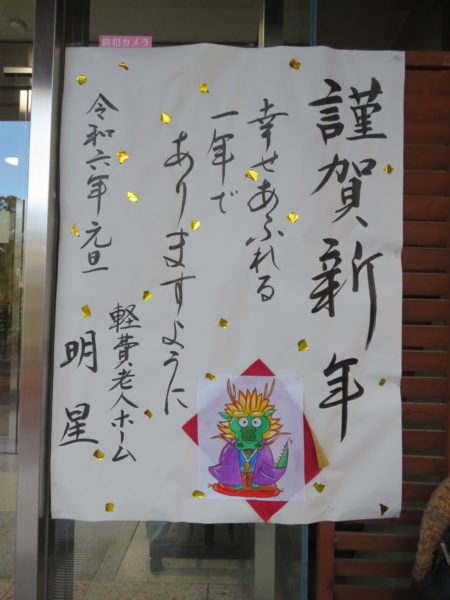 防犯カメラ
謹賀新年
幸せあふれる
一年で
ありますように
令和六年元旦
軽費老人ホーム
明星